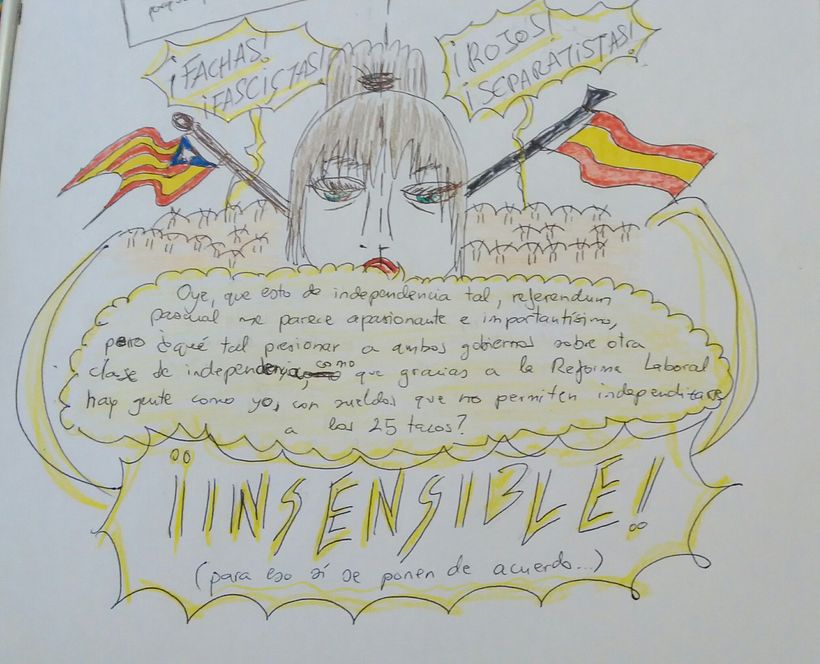 ¡FACHAS!
¡FASCISTAS!
¡ROJOS!
¡SEPARATISTAS!
Oye, que esto de independencia tal, referendum
pascual me parece apasionante e importantísimo,
pero ¿qué tal presionar a ambos gobiernos sobre otra
clase de independencia, como que gracias a la Reforma Laboral
hay gente como yo, con sueldos que no permiten independizarse
a los 25 tacos?
¡¡INSENSIBLE!!
(para eso sí se ponen de acuerdo...)